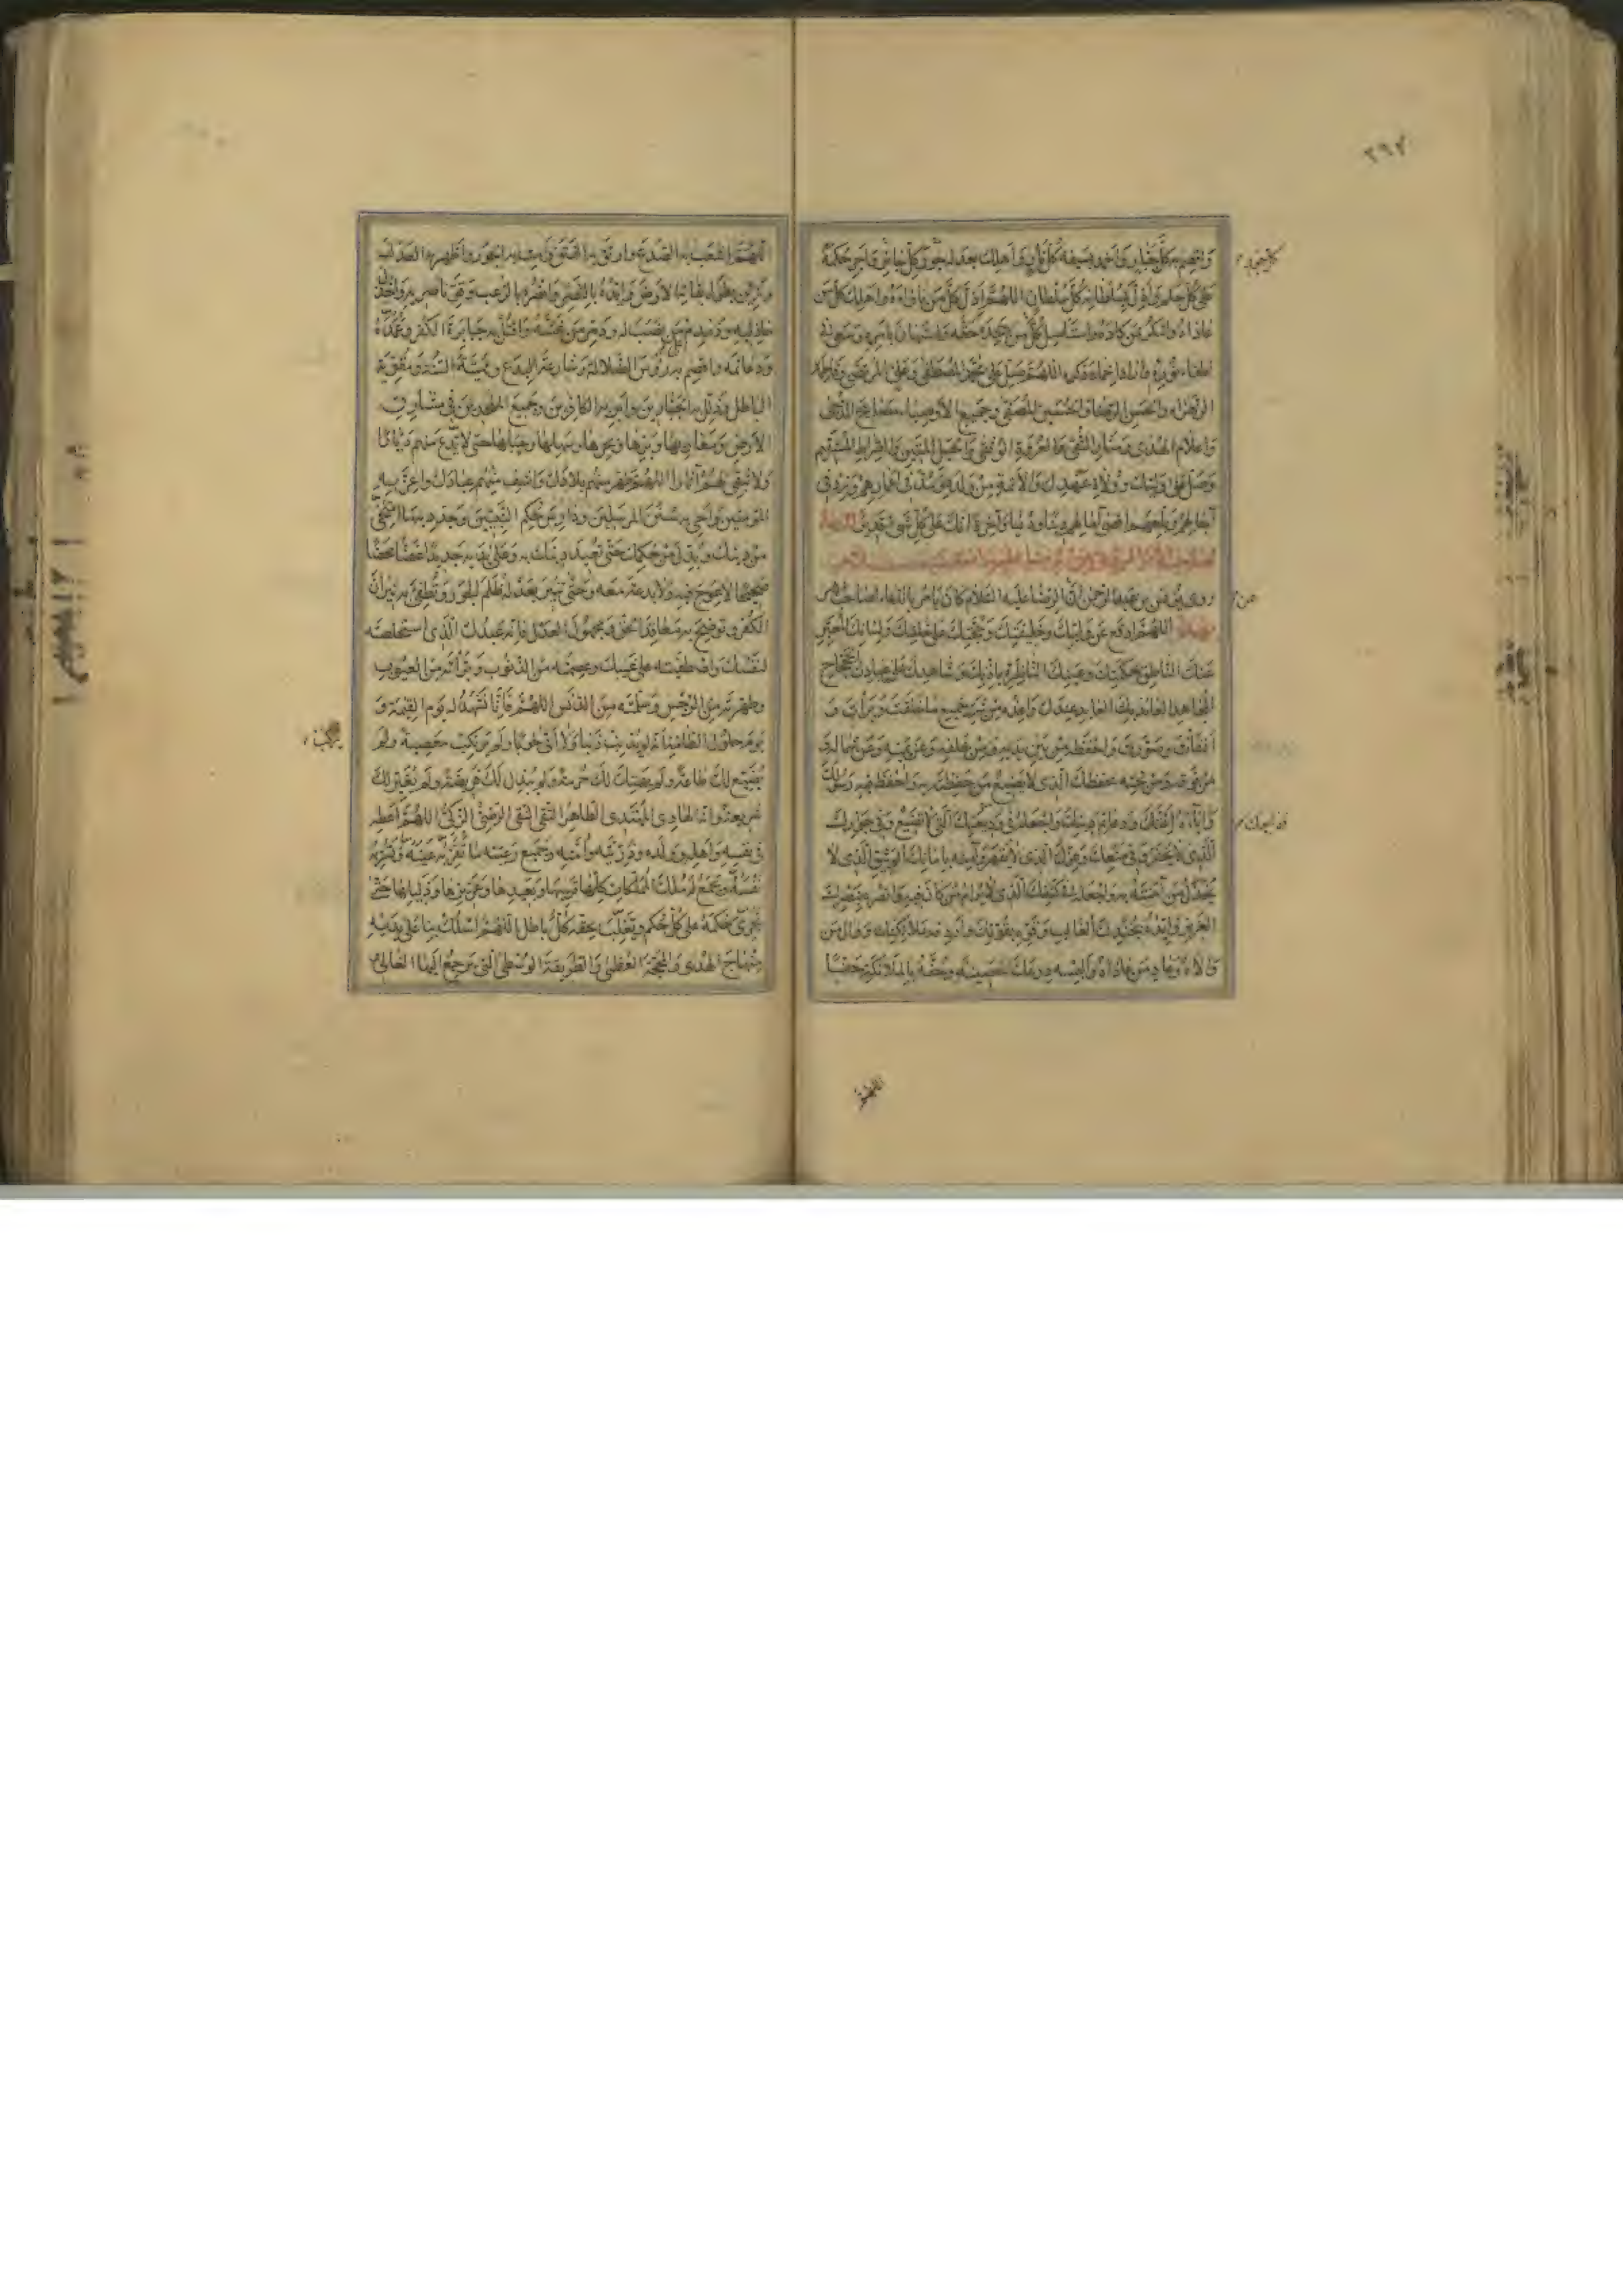 ٢٩٧
واقصم به كل جبار واخمد بسيفه كل نار واهلك بعدله جور كل جائر واجر حكمه
على كل حاكم واذل بسلطانه كل سلطان اللهم اذل كل من ناواه واهلك كل من
عاداه وامكر بمن كاده واستاصل كل من جحد حقه واستهان بامره وسعى في
اطفاء نوره واراد اخماد ذكره اللهم صل على محمد المصطفى وعلي المرتضى وفاطمة
الزهراء والحسن الرضا والحسين المصفى وجميع الاوصياء مصابيح الدجى
واعلام الهدى ومنار التقى والعروة الوثقى والحبل المتين والصراط المستقيم
وصل على وليك وولاة عهدك والائمة من ولده ومد في اعمارهم وزد في
آجالهم وبلغهم اقصى آمالهم دينا ودنيا وآخرة انك على كل شيء قدير الدعاء
لصاحب الامر المروي عن الرضا عليهما السلام
روى يونس بن عبد الرحمن ان الرضا عليه السلام كان يامر بالدعاء لصاحب الامر
بهذا اللهم ادفع عن وليك وخليفتك وحجتك على خلقك ولسانك المعبر
عنك الناطق بحكمتك وعينك الناظرة باذنك وشاهدك على عبادك الجحجاح
المجاهد العائذ بك العابد عندك واعذه من شر جميع ما خلقت وبرأت و
انشات وصورت واحفظه من بين يديه ومن خلفه وعن يمينه وعن شماله و
من فوقه ومن تحته بحفظك الذي لا يضيع من حفظته به واحفظ فيه رسولك
وآباءه ائمتك ودعائم دينك واجعله في وديعتك التي لا تضيع وفي جوارك
الذي لا يخفر وفي منعك وعزك الذي لا يقهر وآمنه بامانك الوثيق الذي لا
يخذل من آمنته به واجعله في كنفك الذي لا يرام من كان فيه وانصره بنصرك
العزيز وايده بجندك الغالب وقوه بقوتك واردفه بملائكتك ووال من
والاه وعاد من عاداه والبسه درعك الحصينة وحفه بالملائكة حفا
اللهم
اللهم اشعب به الصدع وارتق به الفتق وامت به الجور واظهر به العدل
وزين بطول بقائه الارض وايده بالنصر وانصره بالرعب وقو ناصريه واخذل
خاذليه ودمدم من نصب له ودمر من غشه واقتل به جبابرة الكفر وعمده
ودعائمه واقصم به رؤس الضلالة وشارعة البدع ومميتة السنة ومقوية
الباطل وذلل به الجبارين وابر به الكافرين وجميع الملحدين في مشارق
الارض ومغاربها وبرها وبحرها وسهلها وجبلها حتى لا تدع منهم ديارا
ولا تبقي لهم آثارا اللهم طهر منهم بلادك واشف منهم عبادك واعز به
المؤمنين واحي به سنن المرسلين ودارس حكم النبيين وجدد به ما امتحى
من دينك وبدل من حكمك حتى تعيد دينك به وعلى يديه جديدا غضا محضا
صحيحا لا عوج فيه ولا بدعة معه وحتى تنير بعدله ظلم الجور وتطفئ به نيران
الكفر وتوضح به معاقد الحق ومجهول العدل فانه عبدك الذي استخلصته
لنفسك واصطفيته على غيبك وعصمته من الذنوب وبرأته من العيوب
وطهرته من الرجس وسلمته من الدنس اللهم فانا نشهد له يوم القيمة و
يوم حلول الطامة انه لم يذنب ذنبا ولا اتى حوبا ولم يرتكب معصية ولم
يضيع لك طاعة ولم يهتك لك حرمة ولم يبدل لك فريضة ولم يغير لك
شريعة وانه الهادي المهتدي الطاهر التقي النقي الرضي الزكي اللهم اعطه
في نفسه واهله وولده وذريته وامته وجميع رعيته ما تقر به عينه وتسر به
نفسه وتجمع له ملك المملكات كلها قريبها وبعيدها وعزيزها وذليلها حتى
تجري حكمه على كل حكم وتغلب بحقه كل باطل اللهم اسلك بنا على يديه
منهاج الهدى والمحجة العظمى والطريقة الوسطى التي يرجع اليها الغالي